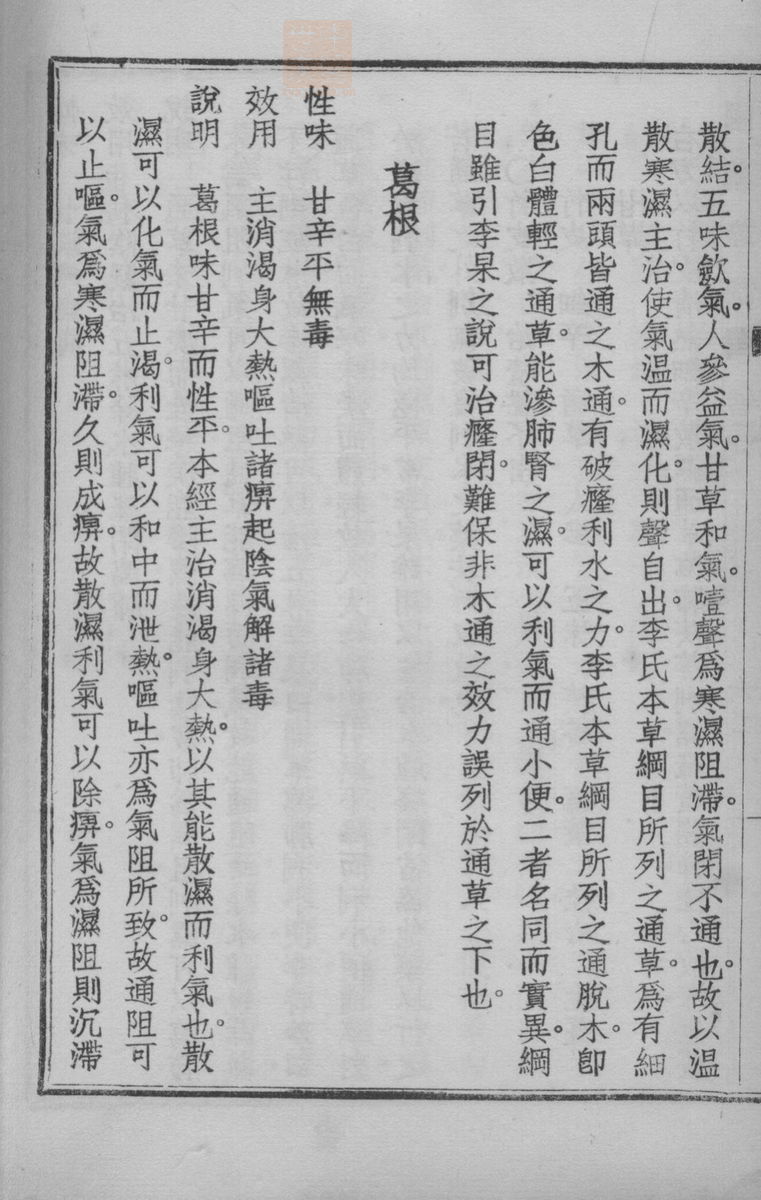 散結。五味斂氣。人參益氣。甘草和氣。噎聲爲寒濕阻滯。氣閉不通也。故以温
散寒濕主治。使氣温而濕化。則聲自出。李氏本草綱目所列之通草。爲有細
孔而兩頭皆通之木通。有破癃利水之力。李氏本草綱目所列之通脫木。卽
色白體輕之通草。能滲肺腎之濕。可以利氣而通小便。二者名同而實異。綱
目雖引李杲之說可治癃閉。難保非木通之效力誤列於通草之下也。
葛根
性味　甘辛平無毒
效用　主消渴身大熱嘔吐諸痹起陰氣解諸毒
說明　葛根味甘辛而性平。本經主治消渴身大熱。以其能散濕而利氣也。散
濕可以化氣而止渴。利氣可以和中而泄熱。嘔吐亦爲氣阻所致。故通阻可
以止嘔。氣爲寒濕阻滯。久則成痹。故散濕利氣可以除痹。氣爲濕阻則沉滯